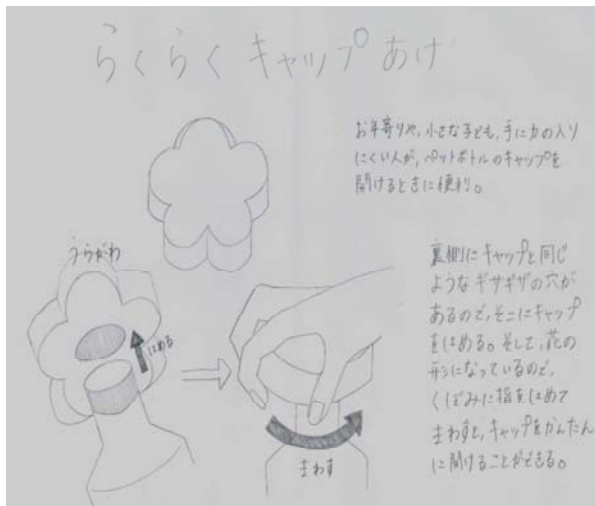 らくらくキャップあけ
お年寄りや、小さな子ども、手に力の入り
にくい人が、ペットボトルのキャップを
開けるときに便利。
うらがわ
はめる
まわす
裏側にキャップと同じ
ようなギザギザの穴が
あるので、そこにキャップ
をはめる。そして、花の
形になっているので、
くぼみに指をはめて
まわすと、キャップをかんたん
に開けることができる。